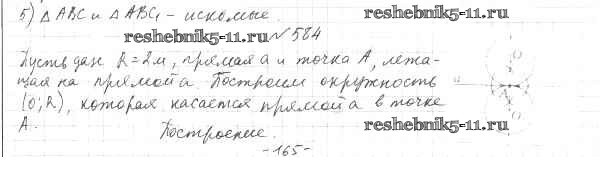 5) △ABC и △ABC₁ - искомые.
reshebnik5-11.ru
reshebnik5-11.ru №584
Пусть дан R=2м, прямая a и точка A, лежа-
щая на прямой a. Построим окружность
(O;R), которая касается прямой a в точке
A.
Построение.
reshebnik5-11.ru
-165-